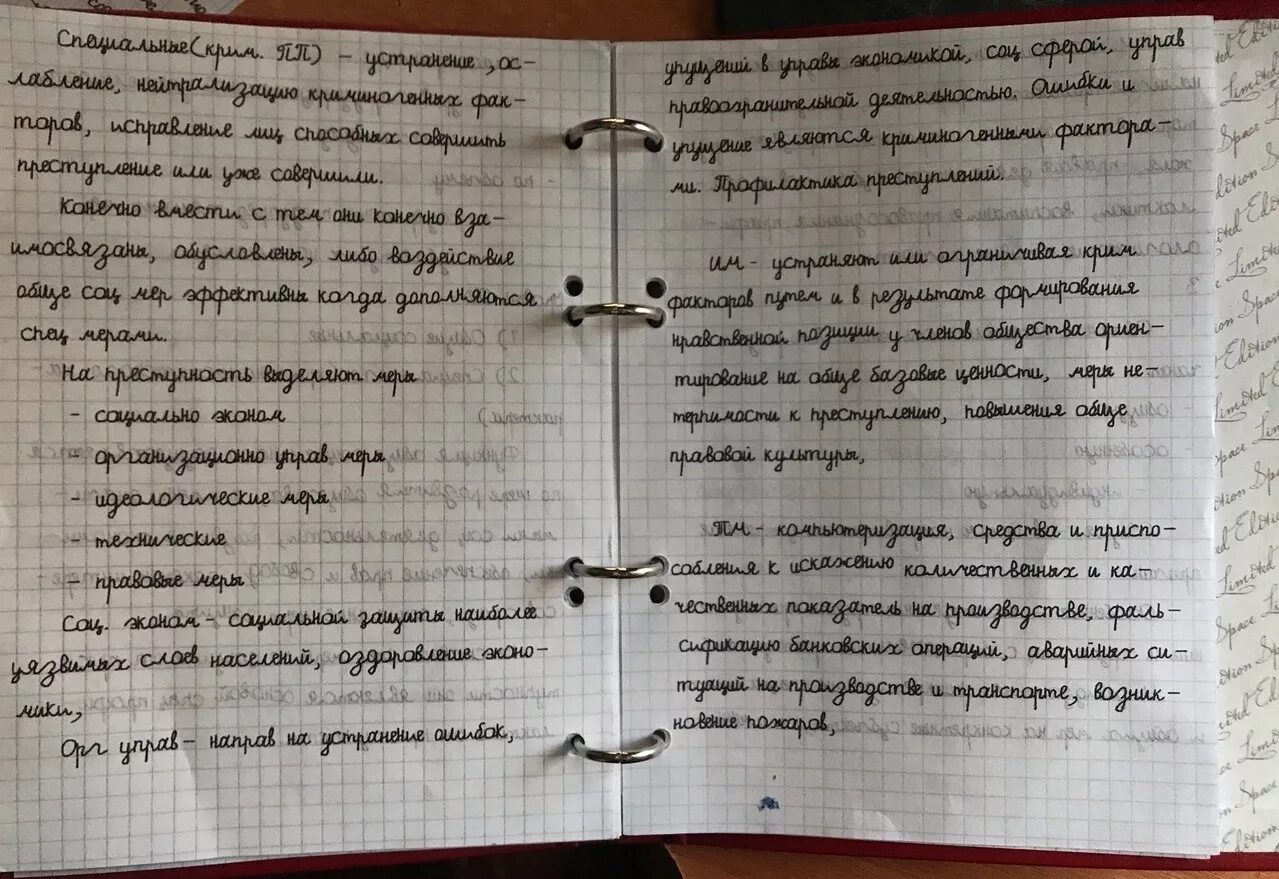 Специальные(крим. ПП) – устранение, ос-
лабление, нейтрализацию криминогенных фак-
торов, исправление лиц способных совершить
преступление или уже совершили.
Конечно вмести с тем они конечно вза-
имосвязаны, обусловлены, либо воздействие
обще соц мер эффективны когда дополняются
спец мерами.
На преступность выделяют меры
- социально эконом
- организационно управ меры
- идеологические меры
- технические
- правовые меры
Соц. эконом – социальной защиты наиболее
уязвимых слоев населений, оздоровление эконо-
мики,
Орг управ – направ на устранение ошибок,
упущений в управы экономикой, соц сферой, управ
правоогранительной деятельностью. Ошибки и
упущение являются криминогенными фактора-
ми. Профилактика преступлений.
ИМ – устраняют или ограничивая крим
факторов путем и в результате формирования
нравственной позиции у членов общества ориен-
тирование на обще базовые ценности, меры не-
терпимости к преступлению, повышения обще
правовой культуры,
ТМ – компьютеризация, средства и приспо-
собления к искажению количественных и ка-
чественных показатель на производстве, фаль-
сификацию банковских операций, аварийных си-
туаций на производстве и транспорте, возник-
новение пожаров,
Limited Edition
Space